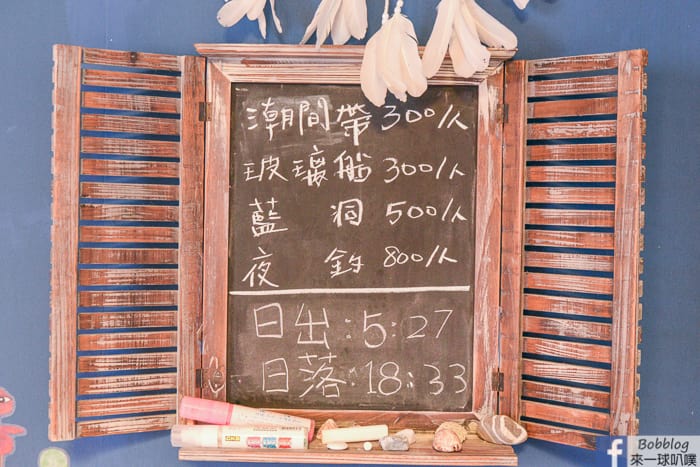 潮間帶 300/人
玻璃船 300/人
藍洞 500/人
夜釣 800/人
日出:5:27
日落:18:33
Bobblog
來一球叭噗